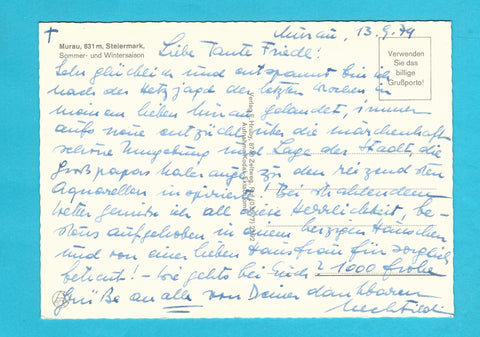 Murau, 13.9.79
Murau, 831 m, Steiermark,
Sommer- und Wintersaison
Verwenden
Sie das
billige
Grußporto!
Liebe Tante Friedl!
Sehr glücklich und entspannt bin ich
nach der Hetzjagd der letzten Wochen in
meinem lieben Murau gelandet, immer
aufs neue entzückt über die märchenhaft
schöne Umgebung u. Lage der Stadt, die
Großpapas Maler augen zu den reizendsten
Aquarellen inspirierte! Bei strahlendem
Wetter genieße ich all diese Herrlichkeit, be-
stens aufgehoben in einem herzigen Häuschen
und von einer lieben Hausfrau fürsorglich
betreut! - Wie gehts bei Euch? 1000 frohe
Grüße an alle von Deiner dankbaren
Mechtild